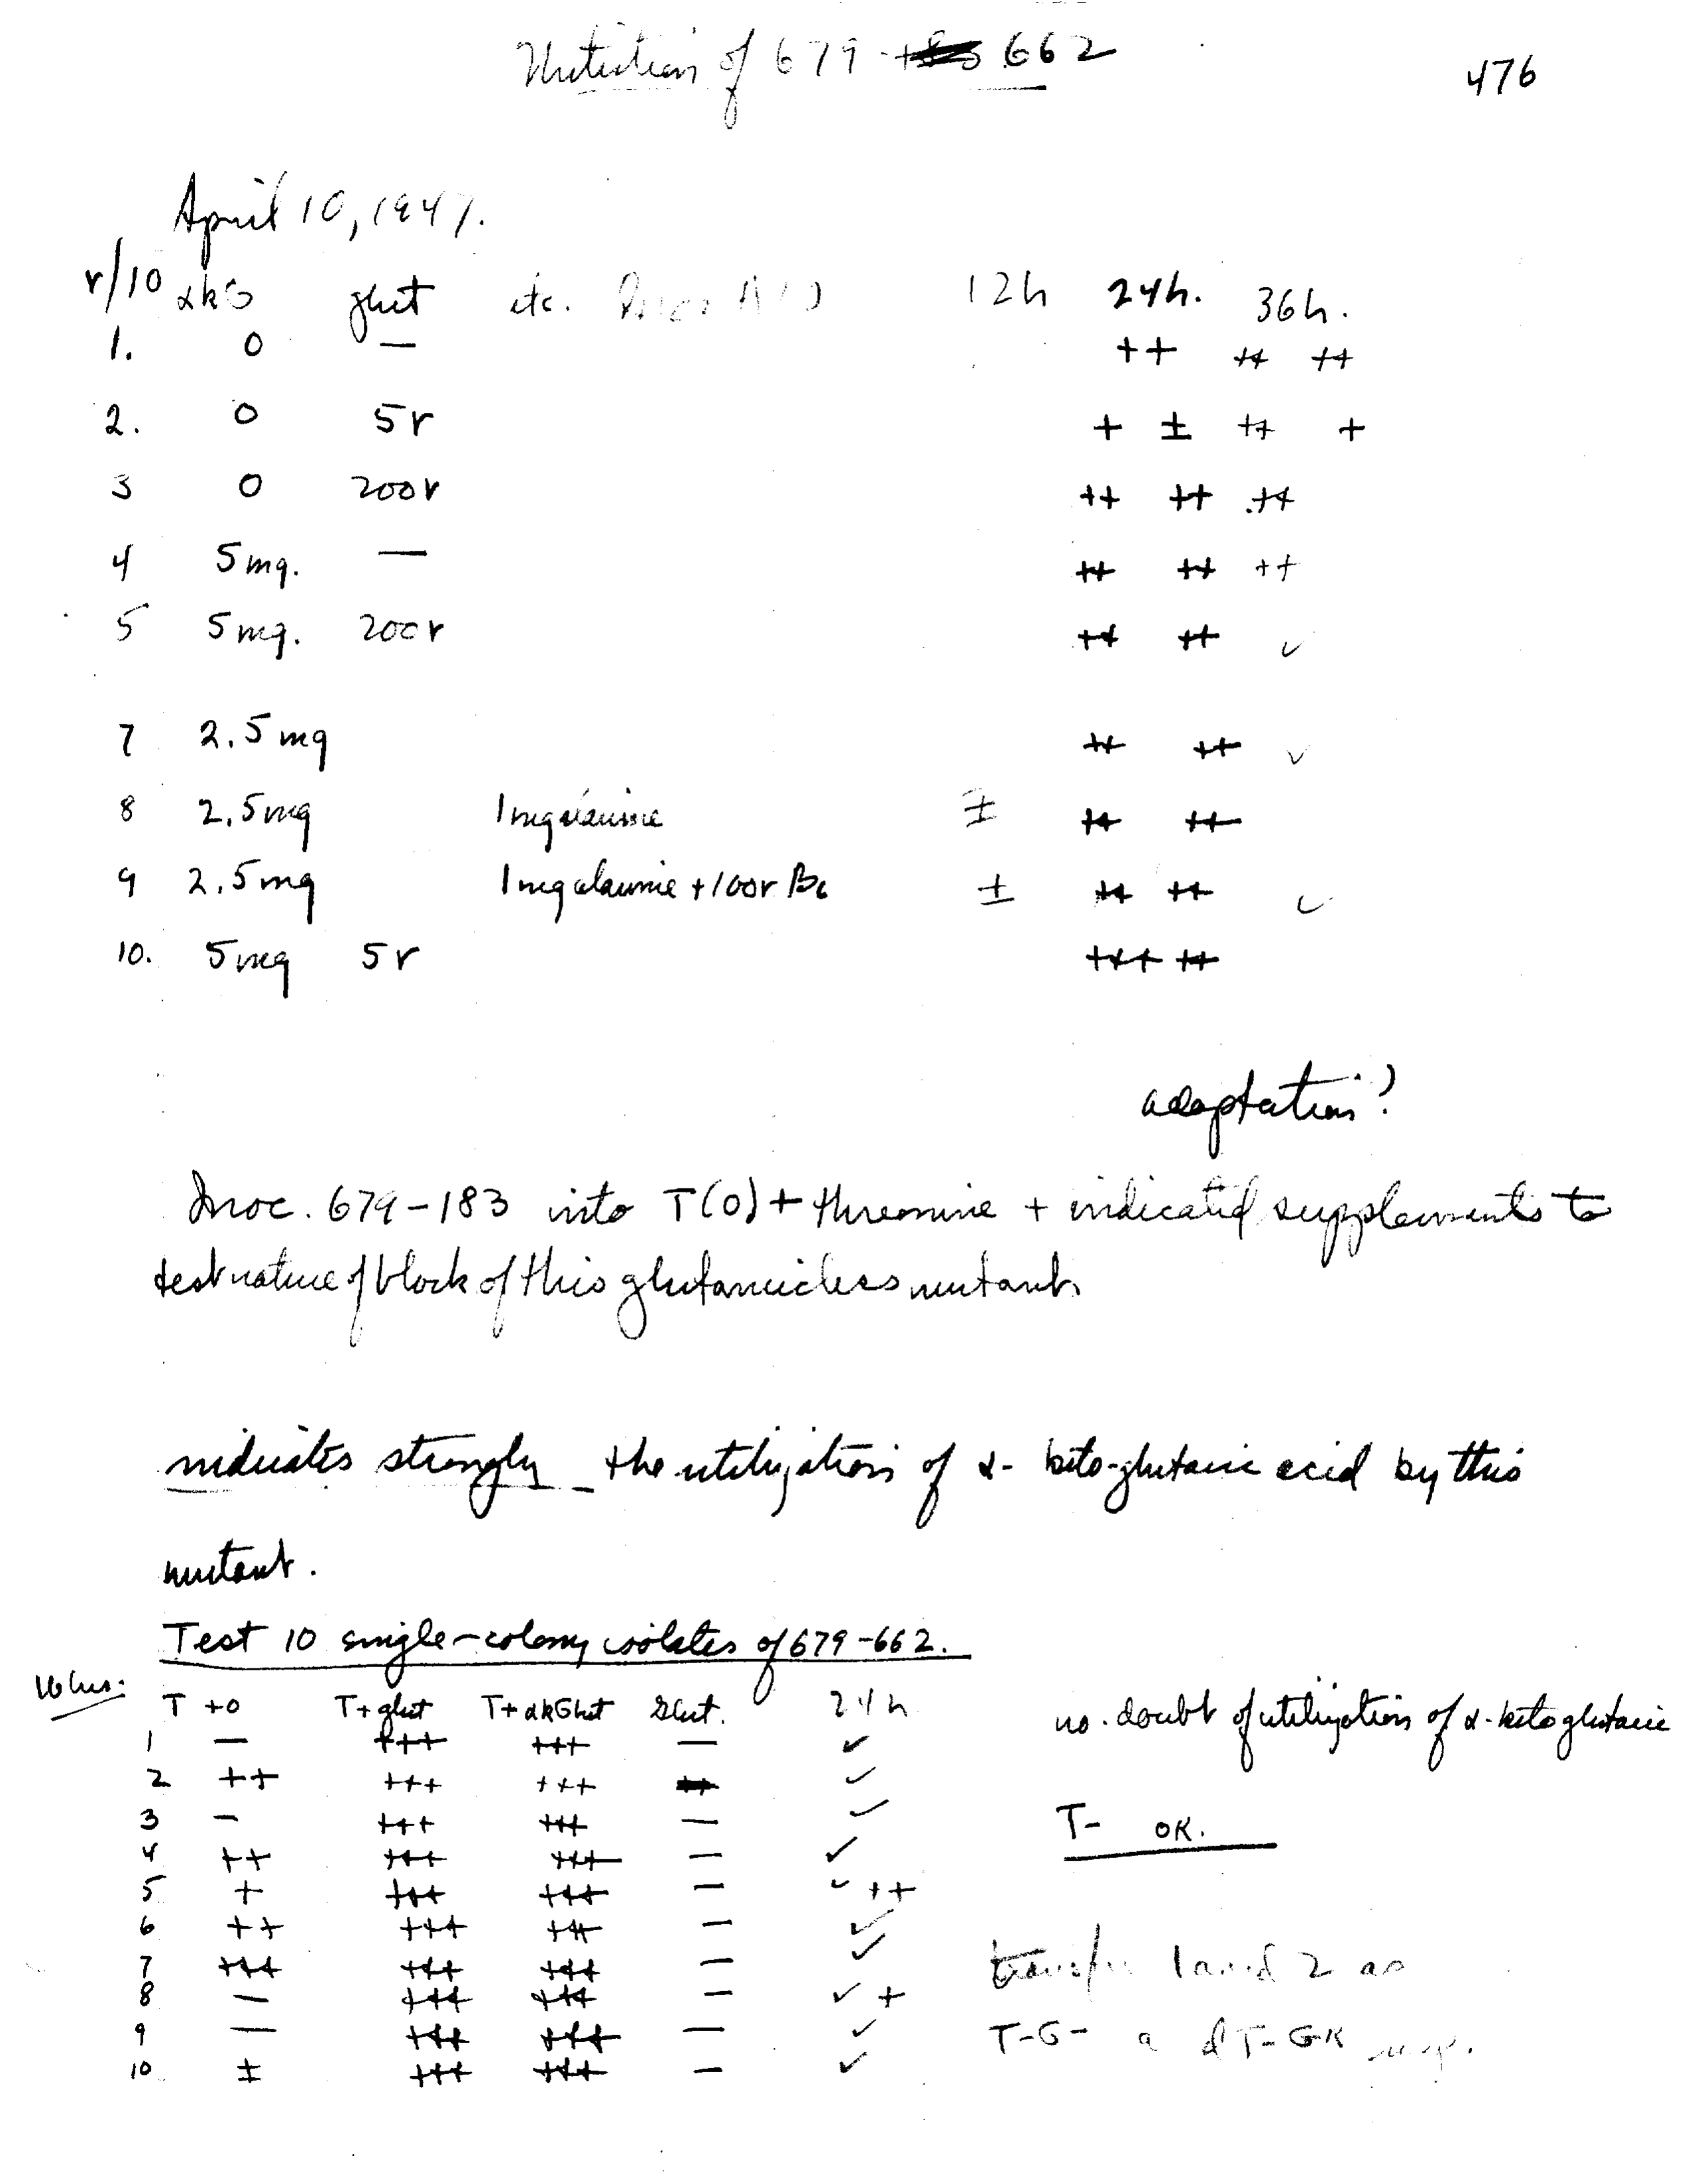 Nutrition of 679-662
476
April 10, 1947.
r/10 αkG glut etc. 12h 24h. 36h.
1. 0 — ++ ++ ++
2. 0 5r + ± ++ +
3 0 200r ++ ++ ++
4 5mg. — ++ ++ ++
5 5mg. 200r ++ ++ ✓
7 2.5mg ++ ++ ✓
8 2.5mg 1mg alanine ± ++ ++
9 2.5mg 1mg alanine + 100r B6 ± ++ ++ ✓
10. 5mg 5r +++ ++
adaptation?
Inoc. 679-183 into T(0) + threonine + indicated supplements to
test nature of block of this glutamicless mutant.
indicates strongly the utilization of α-keto-glutaric acid by this
mutant.
Test 10 single-colony isolates of 679-662.
16 hrs:
T +0 T+glut T+αkGlut Glut. 24h
1 — +++ +++ — ✓
2 ++ +++ +++ ✓
3 — +++ +++ — ✓
4 ++ +++ +++ — ✓
5 + +++ +++ — ✓ ++
6 ++ +++ +++ — ✓
7 +++ +++ +++ — ✓
8 — +++ +++ — ✓ +
9 — +++ +++ — ✓
10 ± +++ +++ — ✓
no doubt of utilization of α-ketoglutaric
T- OK.
transfer 1 and 2 as
T-G- a d T-GK resp.